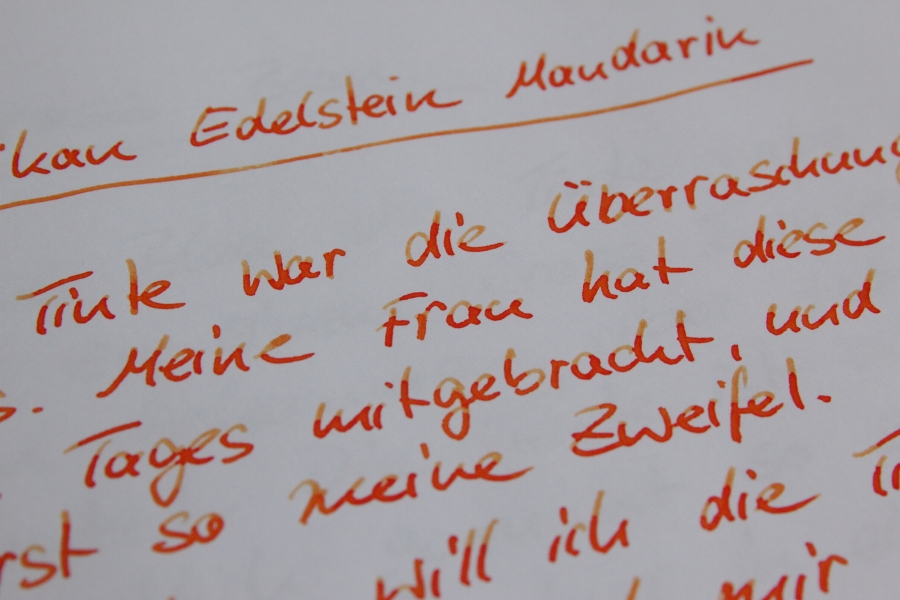 kan Edelstein Mandarin
Tinte war die Überraschung
s. Meine Frau hat diese
Tages mitgebracht, und
rst so meine Zweifel.
will ich die T
mir